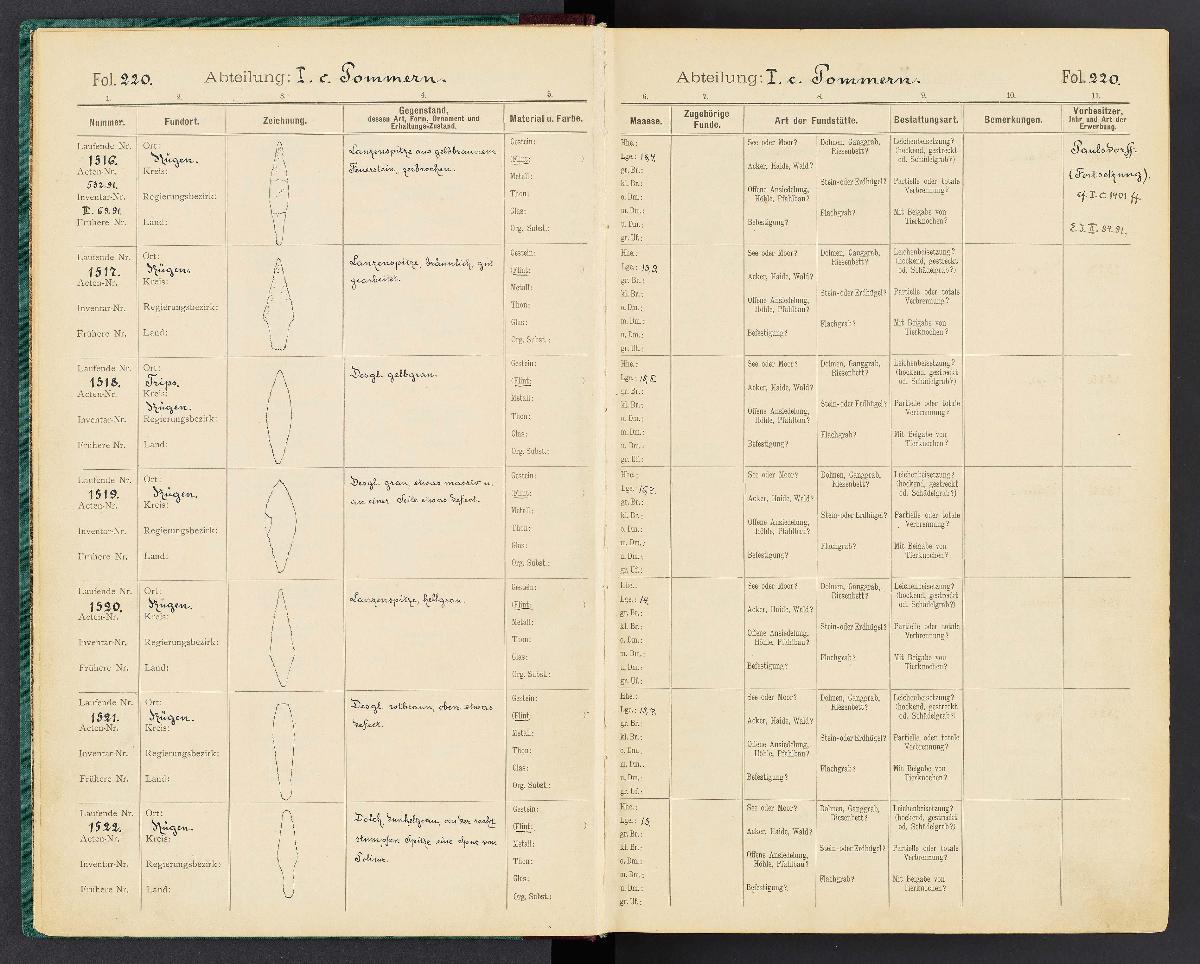 Fol. 220.
Abteilung: I. c. Pommern.
1. 2. 3. 4. 5.
Nummer. Fundort. Zeichnung. Gegenstand, dessen Art, Form, Ornament und Erhaltungs-Zustand. Material u. Farbe.
Laufende Nr. 1516.
Acten-Nr. 532.91.
Inventar-Nr. II. 69.91.
Frühere Nr.
Ort: Rügen.
Kreis:
Regierungsbezirk:
Land:
Lanzenspitze aus gelbbraunem
Feuerstein, zerbrochen.
Gestein:
(Flint:
Metall:
Thon:
Glas:
Org. Subst.:
Laufende Nr. 1517.
Acten-Nr.
Inventar-Nr.
Frühere Nr.
Ort: Rügen.
Kreis:
Regierungsbezirk:
Land:
Lanzenspitze, bräunlich, gut
gearbeitet.
Gestein:
(Flint:
Metall:
Thon:
Glas:
Org. Subst.:
Laufende Nr. 1518.
Acten-Nr.
Inventar-Nr.
Frühere Nr.
Ort: Trips.
Kreis: Rügen.
Regierungsbezirk:
Land:
Desgl. gelbgrau.
Gestein:
(Flint:
Metall:
Thon:
Glas:
Org. Subst.:
Laufende Nr. 1519.
Acten-Nr.
Inventar-Nr.
Frühere Nr.
Ort: Rügen.
Kreis:
Regierungsbezirk:
Land:
Desgl. grau, etwas massiv u.
an einer Seite etwas defect.
Gestein:
(Flint:
Metall:
Thon:
Glas:
Org. Subst.:
Laufende Nr. 1520.
Acten-Nr.
Inventar-Nr.
Frühere Nr.
Ort: Rügen.
Kreis:
Regierungsbezirk:
Land:
Lanzenspitze, hellgrau.
Gestein:
(Flint:
Metall:
Thon:
Glas:
Org. Subst.:
Laufende Nr. 1521.
Acten-Nr.
Inventar-Nr.
Frühere Nr.
Ort: Rügen.
Kreis:
Regierungsbezirk:
Land:
Desgl. rotbraun, oben etwas
defect.
Gestein:
(Flint:
Metall:
Thon:
Glas:
Org. Subst.:
Laufende Nr. 1522.
Acten-Nr.
Inventar-Nr.
Frühere Nr.
Ort: Rügen.
Kreis:
Regierungsbezirk:
Land:
Dolch, dunkelgrau, an der recht
stumpfen Spitze eine Spur von
Politur.
Gestein:
(Flint:
Metall:
Thon:
Glas:
Org. Subst.:
Abteilung: I. c. Pommern.
Fol. 220.
6. 7. 8. 9. 10. 11.
Maasse. Zugehörige Funde. Art der Fundstätte. Bestattungsart. Bemerkungen. Vorbesitzer, Jahr und Art der Erwerbung.
Hhe.:
Lge.: 13,4
gr. Br.:
kl. Br.:
o. Dm.:
m. Dm.:
u. Dm.:
gr. Uf.:
See oder Moor?
Acker, Haide, Wald?
Offene Ansiedelung,
Höhle, Pfahlbau?
Befestigung?
Dolmen, Ganggrab,
Riesenbett?
Stein- oder Erdhügel?
Flachgrab?
Leichenbeisetzung?
(hockend, gestreckt
od. Schädelgrab?)
Partielle oder totale
Verbrennung?
Mit Beigabe von
Tierknochen?
Paulsdorff-
(Fortsetzung).
cf. I. C 1401 ff.
E. J. II. 87.91.
Hhe.:
Lge.: 13,3
gr. Br.:
kl. Br.:
o. Dm.:
m. Dm.:
u. Dm.:
gr. Uf.:
See oder Moor?
Acker, Haide, Wald?
Offene Ansiedelung,
Höhle, Pfahlbau?
Befestigung?
Dolmen, Ganggrab,
Riesenbett?
Stein- oder Erdhügel?
Flachgrab?
Leichenbeisetzung?
(hockend, gestreckt
od. Schädelgrab?)
Partielle oder totale
Verbrennung?
Mit Beigabe von
Tierknochen?
Hhe.:
Lge.:
gr. Br.:
kl. Br.:
o. Dm.:
m. Dm.:
u. Dm.:
gr. Uf.:
See oder Moor?
Acker, Haide, Wald?
Offene Ansiedelung,
Höhle, Pfahlbau?
Befestigung?
Dolmen, Ganggrab,
Riesenbett?
Stein- oder Erdhügel?
Flachgrab?
Leichenbeisetzung?
(hockend, gestreckt
od. Schädelgrab?)
Partielle oder totale
Verbrennung?
Mit Beigabe von
Tierknochen?
Hhe.:
Lge.:
gr. Br.:
kl. Br.:
o. Dm.:
m. Dm.:
u. Dm.:
gr. Uf.:
See oder Moor?
Acker, Haide, Wald?
Offene Ansiedelung,
Höhle, Pfahlbau?
Befestigung?
Dolmen, Ganggrab,
Riesenbett?
Stein- oder Erdhügel?
Flachgrab?
Leichenbeisetzung?
(hockend, gestreckt
od. Schädelgrab?)
Partielle oder totale
Verbrennung?
Mit Beigabe von
Tierknochen?
Hhe.:
Lge.: 14.
gr. Br.:
kl. Br.:
o. Dm.:
m. Dm.:
u. Dm.:
gr. Uf.:
See oder Moor?
Acker, Haide, Wald?
Offene Ansiedelung,
Höhle, Pfahlbau?
Befestigung?
Dolmen, Ganggrab,
Riesenbett?
Stein- oder Erdhügel?
Flachgrab?
Leichenbeisetzung?
(hockend, gestreckt
od. Schädelgrab?)
Partielle oder totale
Verbrennung?
Mit Beigabe von
Tierknochen?
Hhe.:
Lge.: 13,7.
gr. Br.:
kl. Br.:
o. Dm.:
m. Dm.:
u. Dm.:
gr. Uf.:
See oder Moor?
Acker, Haide, Wald?
Offene Ansiedelung,
Höhle, Pfahlbau?
Befestigung?
Dolmen, Ganggrab,
Riesenbett?
Stein- oder Erdhügel?
Flachgrab?
Leichenbeisetzung?
(hockend, gestreckt
od. Schädelgrab?)
Partielle oder totale
Verbrennung?
Mit Beigabe von
Tierknochen?
Hhe.:
Lge.: 13.
gr. Br.:
kl. Br.:
o. Dm.:
m. Dm.:
u. Dm.:
gr. Uf.:
See oder Moor?
Acker, Haide, Wald?
Offene Ansiedelung,
Höhle, Pfahlbau?
Befestigung?
Dolmen, Ganggrab,
Riesenbett?
Stein- oder Erdhügel?
Flachgrab?
Leichenbeisetzung?
(hockend, gestreckt
od. Schädelgrab?)
Partielle oder totale
Verbrennung?
Mit Beigabe von
Tierknochen?